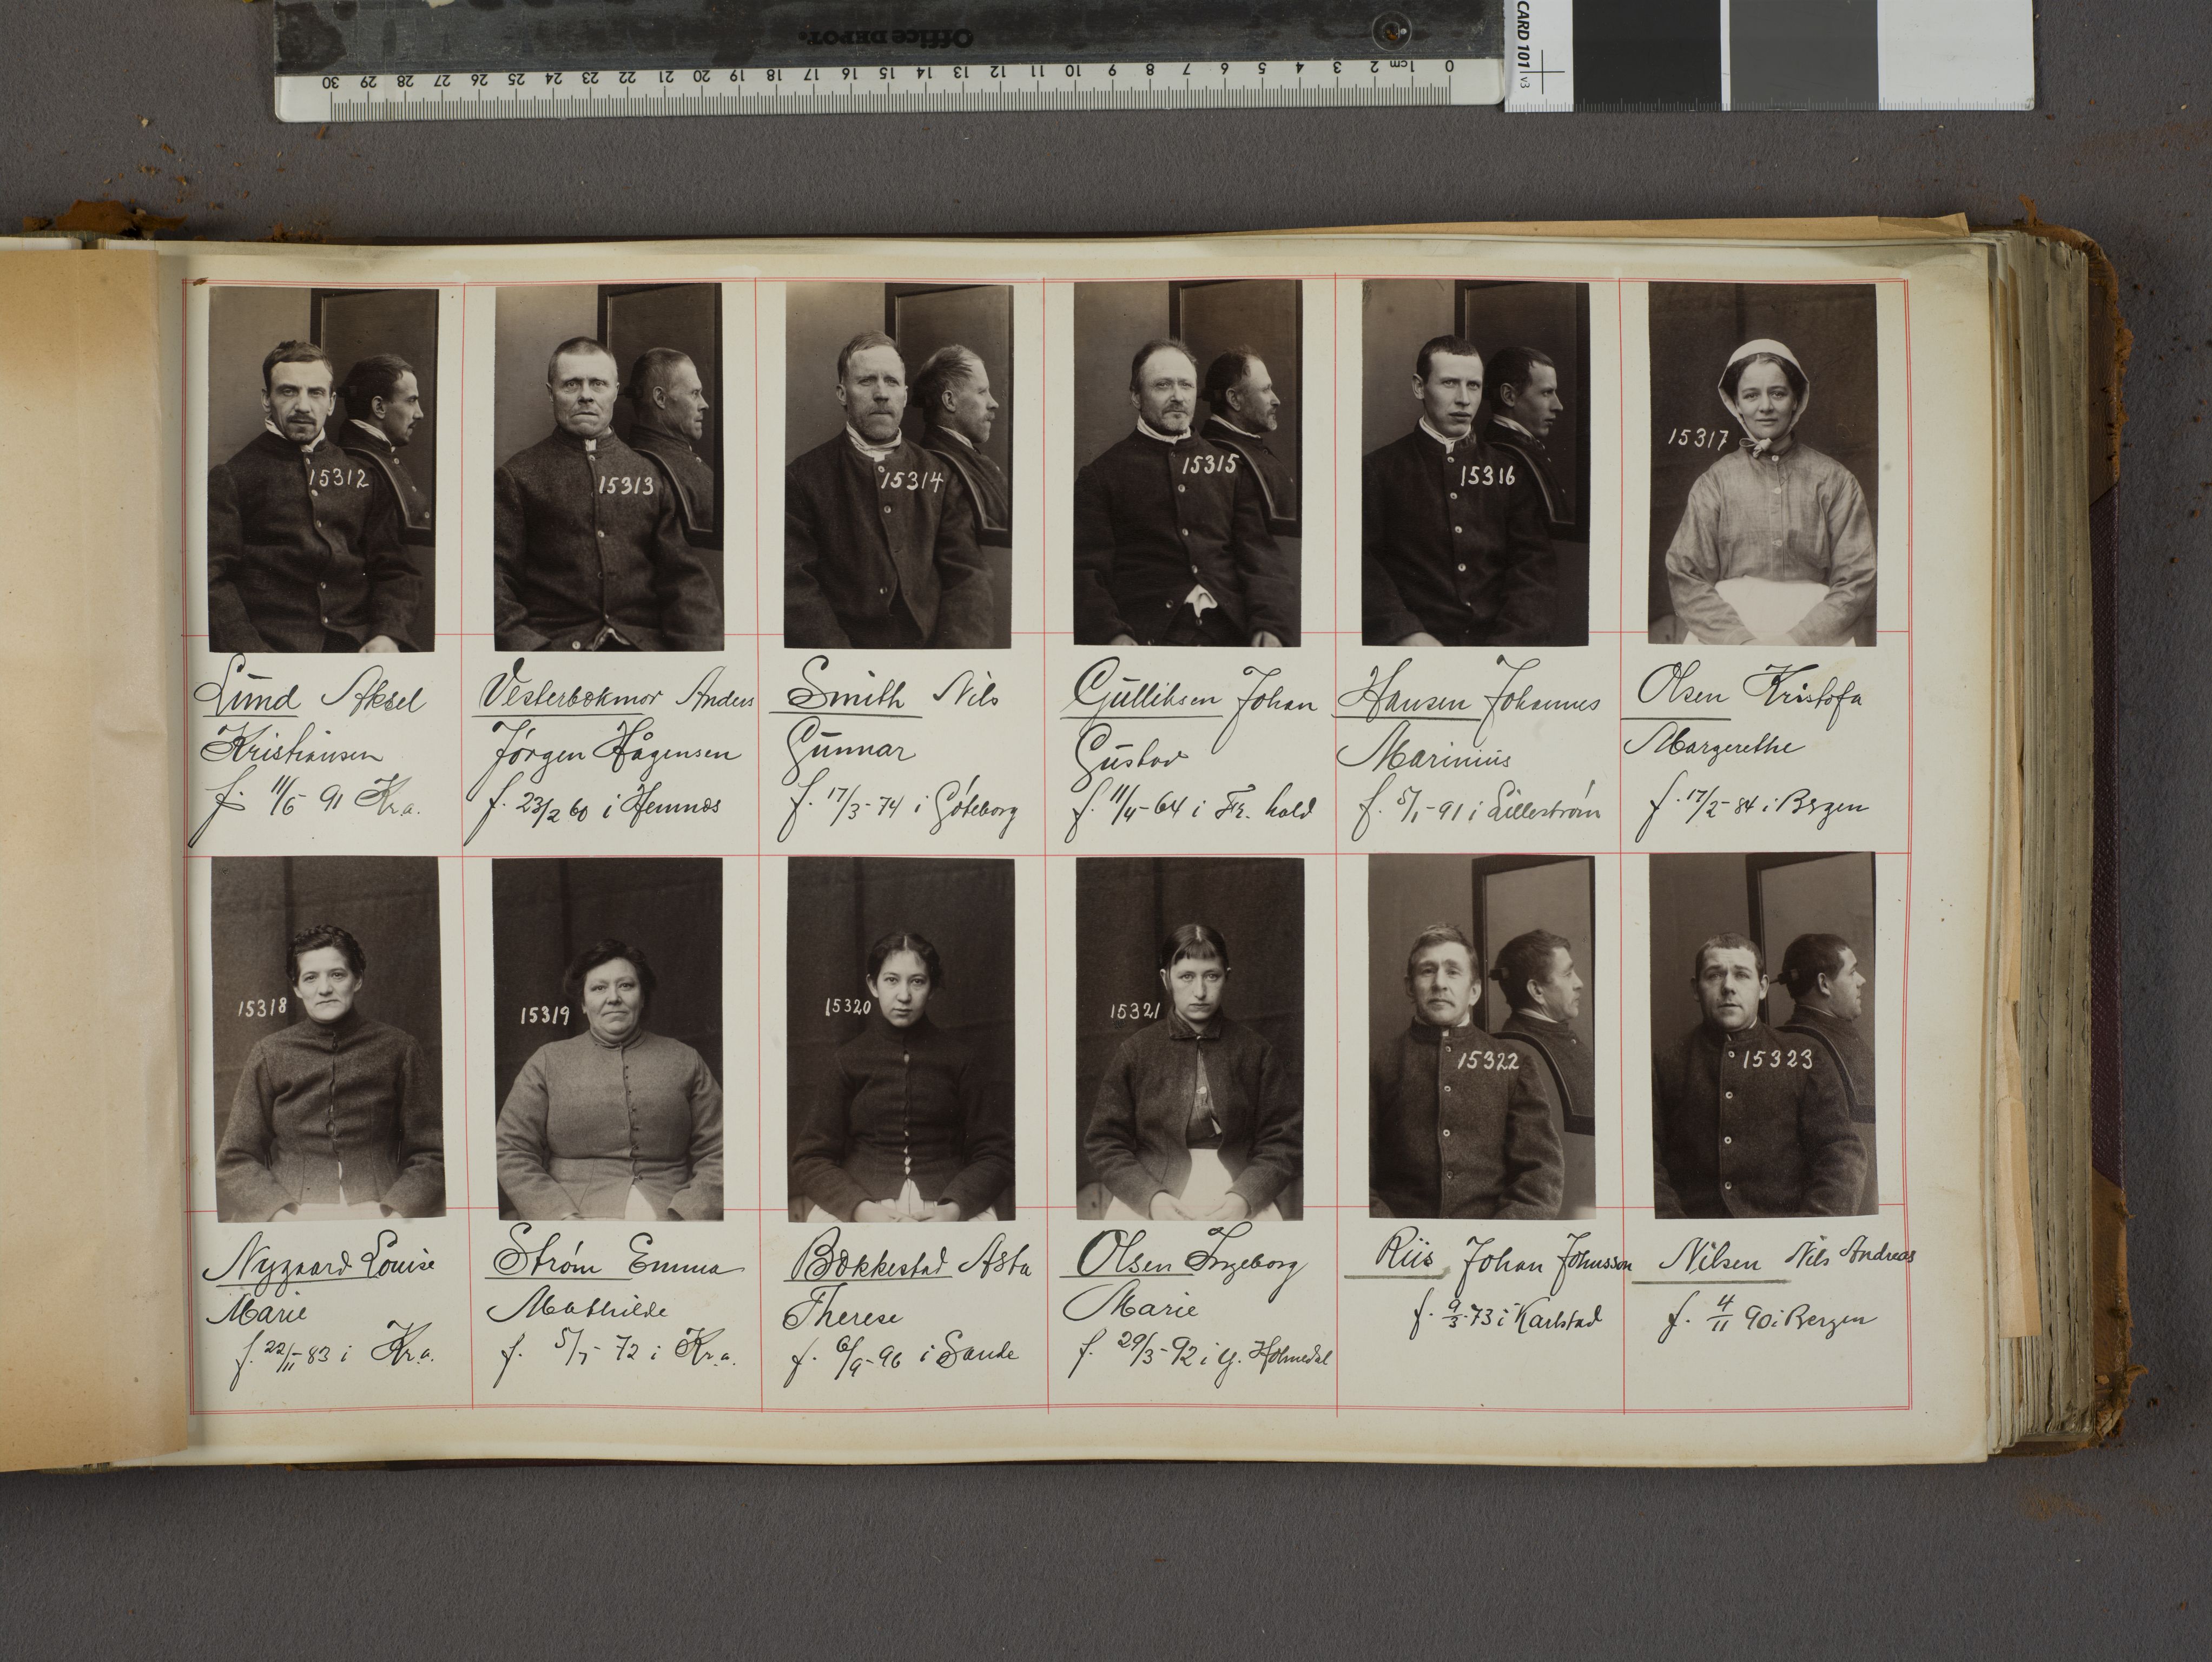 Office DEPOT.
30 29 28 27 26 25 24 23 22 21 20 19 18 17 16 15 14 13 12 11 10 9 8 7 6 5 4 3 2 1cm 0
CARD 101 v3
15312
15313
15314
15315
15316
15317
Lund Aksel
Kristiansen
f. 11/6 91 Kr.a.
Vesterbækmor Anders
Jörgen Hågensen
f. 23/2 60 i Hemnæs
Smith Nils
Gunnar
f. 17/3-74 i Göteborg
Gulliksen Johan
Gustav
f. 11/4-64 i Fr. hald
Hansen Johannes
Marinius
f. 5/1-91 i Lilleström
Olsen Kristofa
Margerethe
f. 17/2-84 i Bergen
15318
15319
15320
15321
15322
15323
Nygaard Louise
Marie
f. 22/11-83 i Kr.a.
Strøm Emma
Mathilde
f. 5/7-72 i Kr.a.
Bækkestad Asta
Therese
f. 6/9-96 i Sande
Olsen Ingeborg
Marie
f. 29/3-92 i Y. Holmedal
Riis Johan Johnsson
f. 9/3-73 i Karlstad
Nilsen Nils Andreas
f. 4/11 90 i Bergen